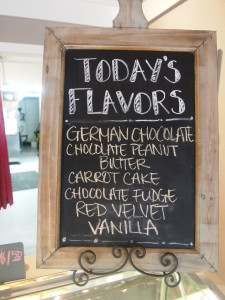 TODAY'S
FLAVORS
GERMAN CHOCOLATE
CHOCOLATE PEANUT
BUTTER
CARROT CAKE
CHOCOLATE FUDGE
RED VELVET
VANILLA